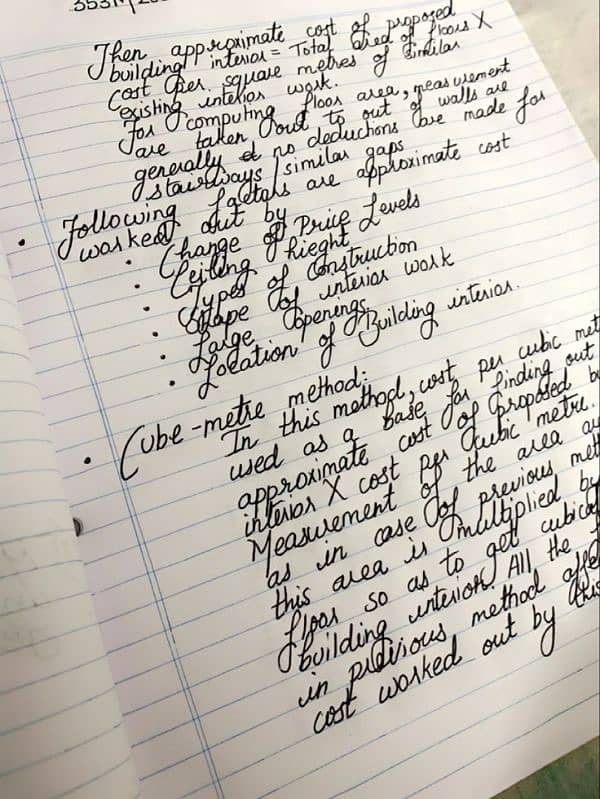 353M/20
Then approximate cost of proposed
building interior = Total area of floors X
Cost per square metres of similar
existing interior work.
For computing floor area, measurement
are taken out to out of walls are
generally & no deductions are made for
stairways / similar gaps
• Following factors are approximate cost
worked out by
• Change of Price Levels
• Ceiling hieght
• Types of Construction
• Shape of interior work
• Large Openings
• Location of Building interior.
• Cube-metre method:
In this method, cost per cubic met
used as a base for finding out
approximate cost of proposed b
interior X cost per cubic metre.
Measurement of the area a
as in case of previous met
this area is multiplied by
floor so as to get cubica
building interior. All the
in previous method affe
cost worked out by this